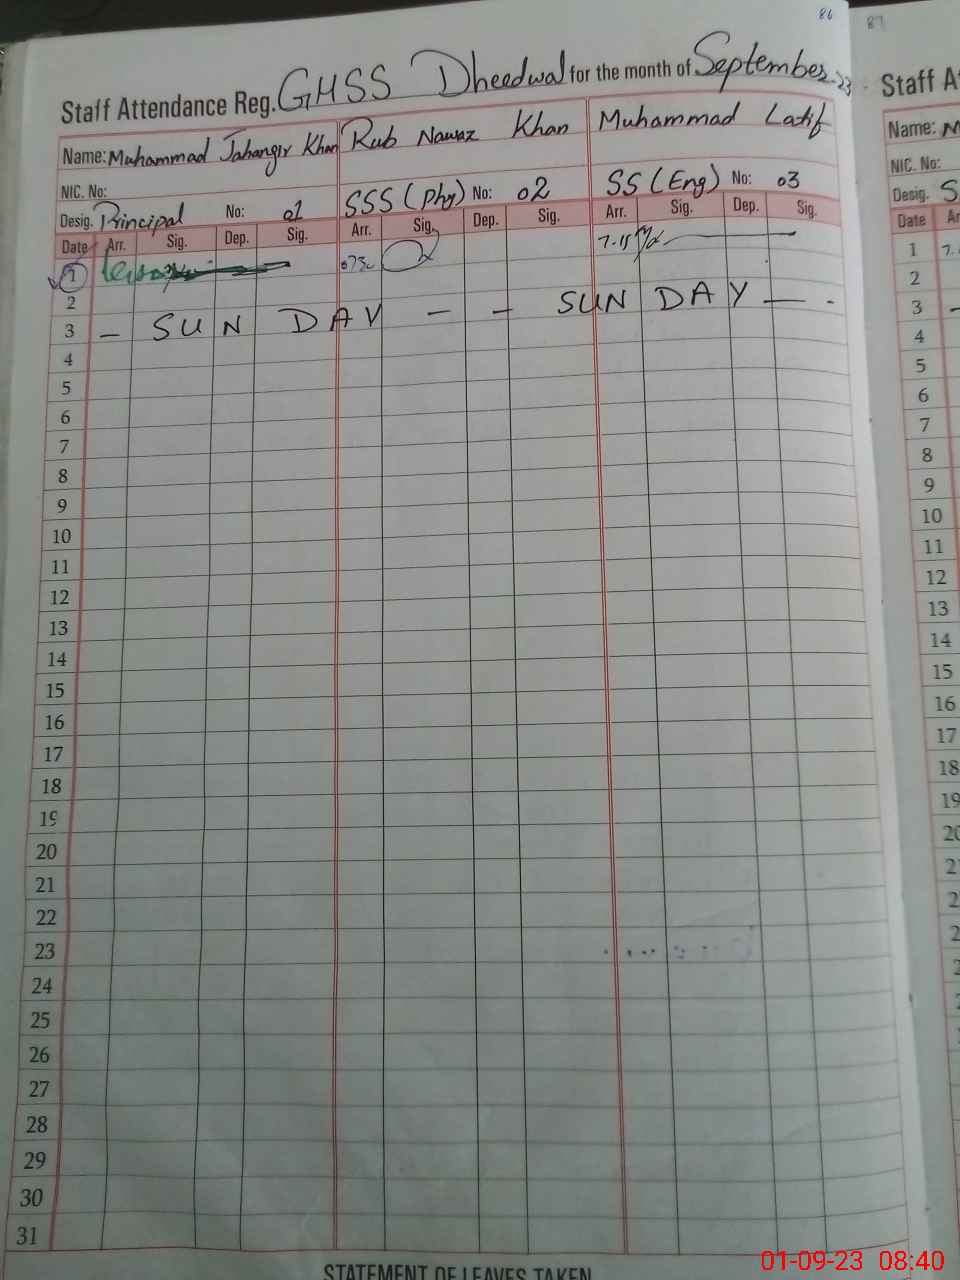 86
87
Staff Attendance Reg. GHSS Dheedwal for the month of September-23
Name: Muhammad Jahangir Khan Rub Nawaz Khan Muhammad Latif
NIC. No:
Desig. Principal No: 01 SSS (Phy) No: 02 SS (Eng) No: 03
Date Arr. Sig. Dep. Sig. Arr. Sig. Dep. Sig. Arr. Sig. Dep. Sig.
1 7-15
2
3 - SUNDAY - - SUNDAY -
4
5
6
7
8
9
10
11
12
13
14
15
16
17
18
19
20
21
22
23
24
25
26
27
28
29
30
31
STATEMENT OF LEAVES TAKEN
Staff A
Name: M
NIC. No:
Desig. S
Date Ar
1 7.
2
3 -
4
5
6
7
8
9
10
11
12
13
14
15
16
17
18
19
20
01-09-23 08:40